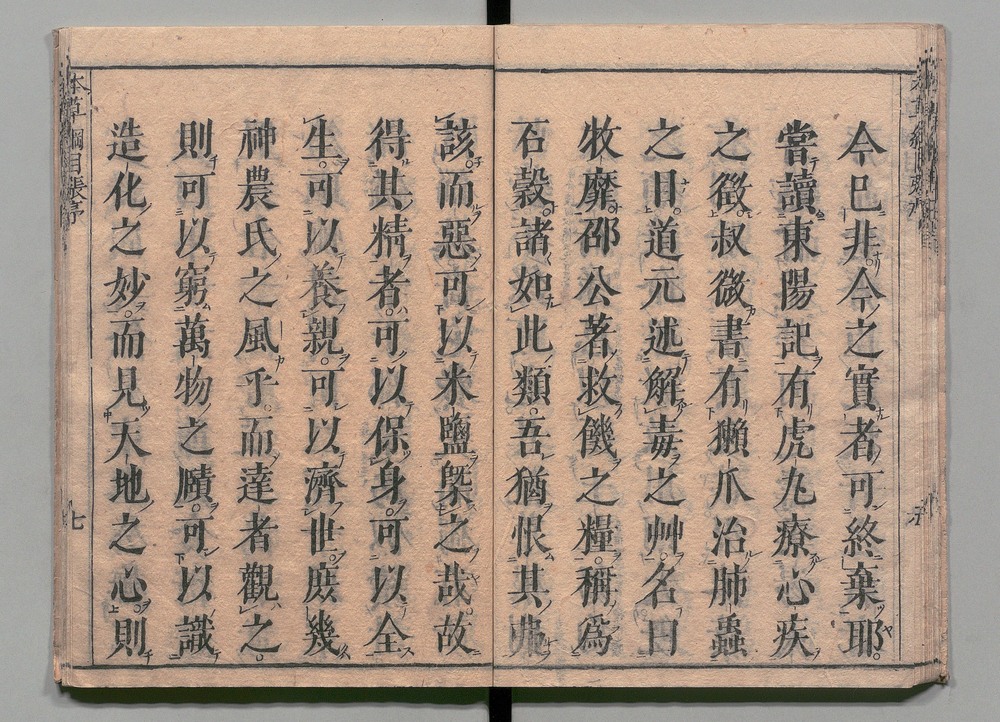 今已非今之實者可終棄耶
嘗讀東陽記有虎丸療心疾
之徵叔微書有獺爪治肺蟲
之目道元述解毒之艸名曰
牧靡邵公著救饑之糧稱爲
石穀諸如此類吾猶恨其弗
該而惡可以米鹽槩之哉故
得其精者可以保身可以全
生可以養親可以濟世庶幾
神農氏之風乎而達者觀之
則可以窮萬物之賾可以識
造化之妙而見天地之心則
本草綱目張序
七